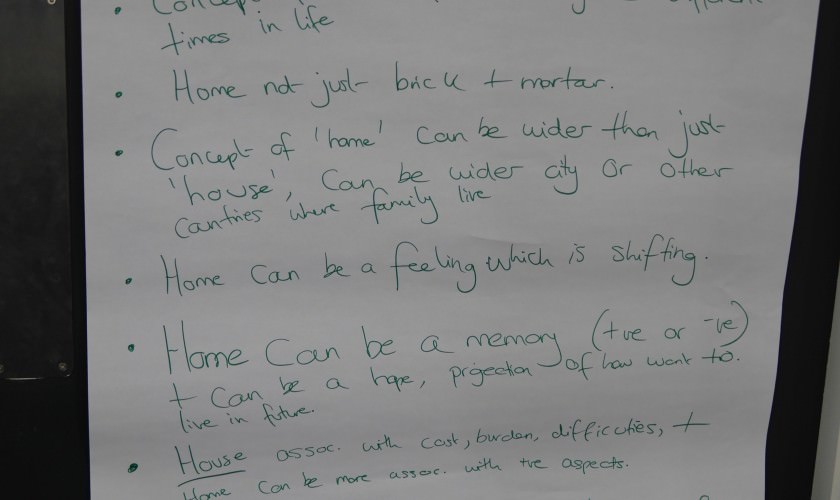 • Concept
times in life
• Home not just brick + mortar.
• Concept of 'home' can be wider than just
'house', Can be wider city or other
cantries where family live
• Home can be a feeling which is shifting.
• Home can be a memory (+ve or -ve)
+ can be a hope, projection of how want to.
live in future.
• House assoc. with cost, burden, difficulties, +
Home can be more assoc. with +ve aspects.